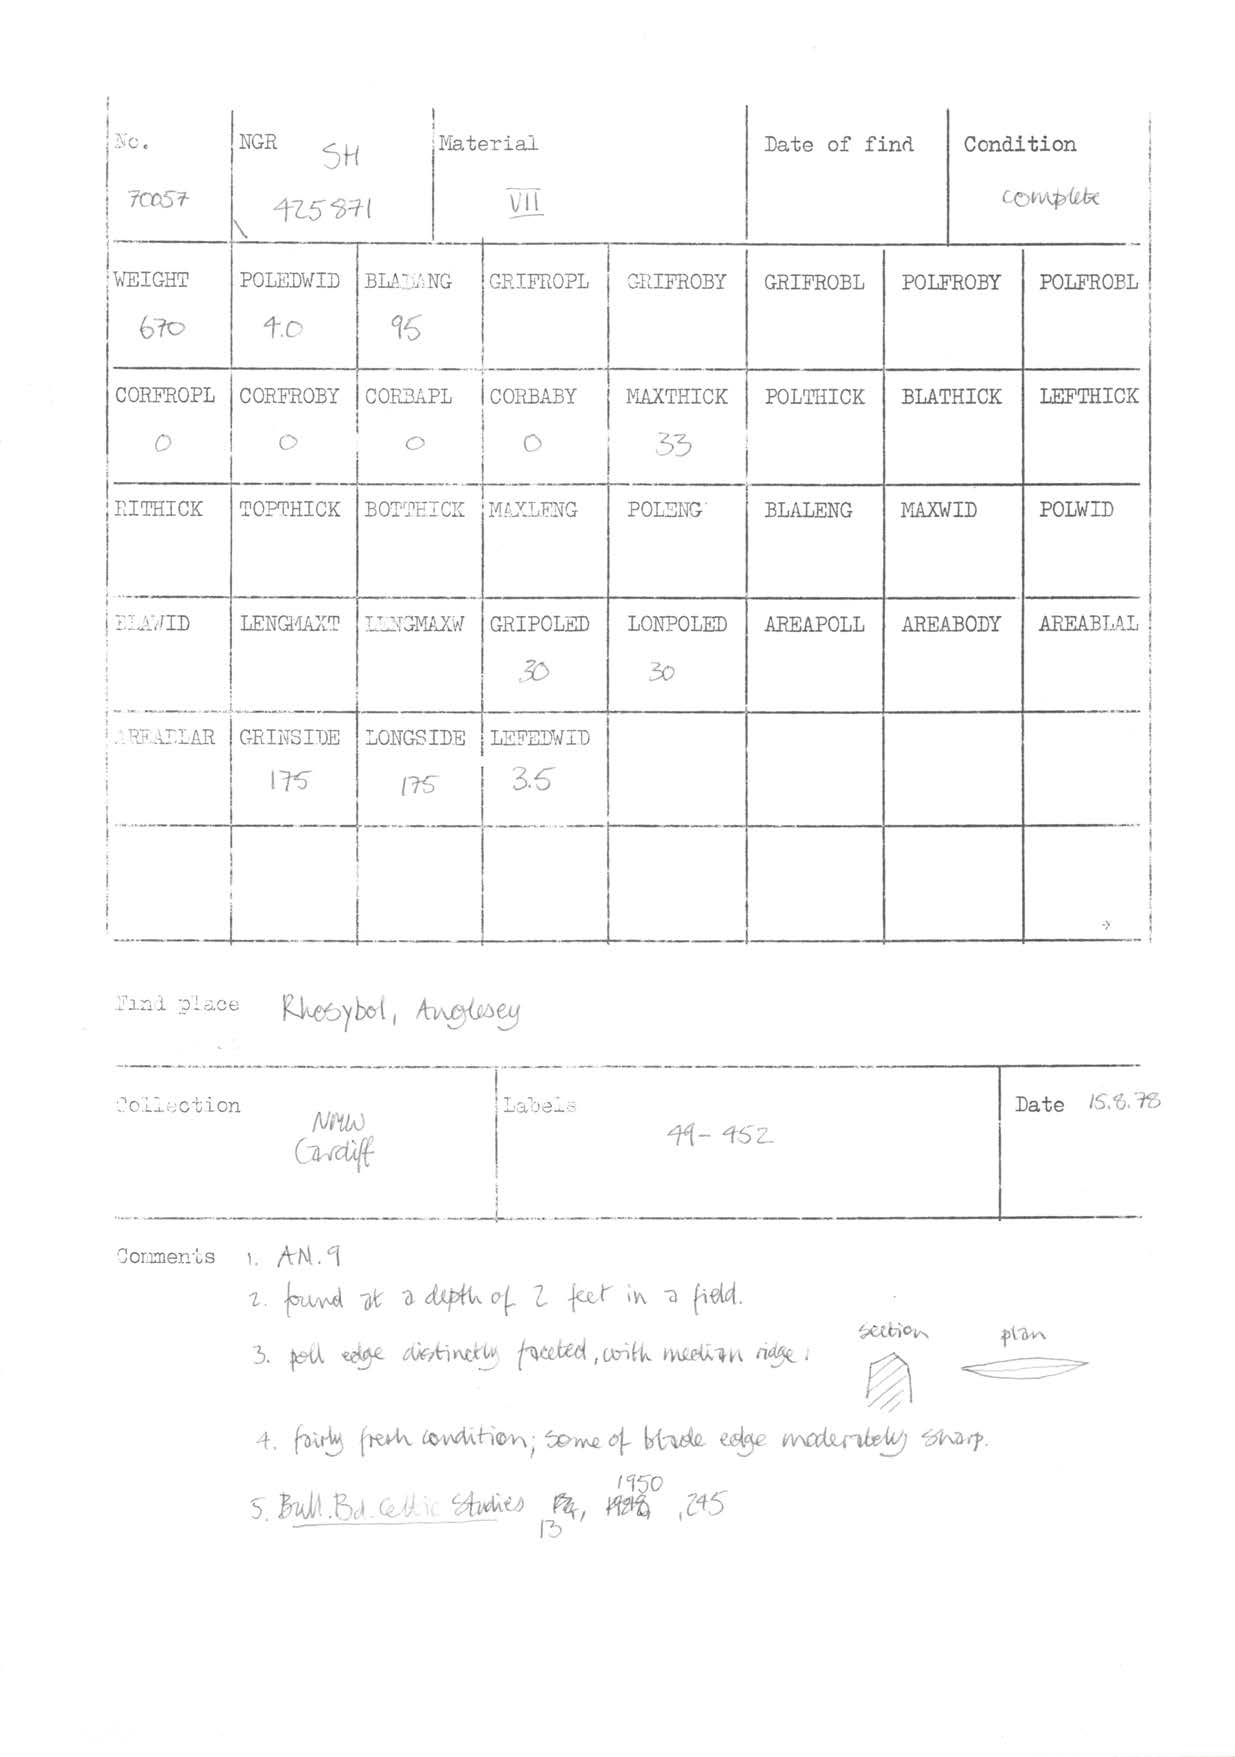 No. NGR SH Material Date of find Condition
70057 425871 VII complete
WEIGHT POLEDWID BLADANG GRIFROPL GRIFROBY GRIFROBL POLFROBY POLFROBL
670 4.0 95
CORFROPL CORFROBY CORBAPL CORBABY MAXTHICK POLTHICK BLATHICK LEFTHICK
0 0 0 0 33
RITHICK TOPTHICK BOTTHICK MAXLENG POLENG BLALENG MAXWID POLWID
BLAWID LENGMAXT LENGMAXW GRIPOLED LONPOLED AREAPOLL AREABODY AREABLAL
30 30
AREABLAR GRINSIDE LONGSIDE LEFEDWID
175 175 3.5
Find place Rhosybol, Anglesey
Collection Labels Date 15.8.78
NMW
Cardiff
49-452
Comments 1. AN.9
2. found at a depth of 2 feet in a field.
section plan
3. poll edge distinctly faceted, with median ridge.
4. fairly fresh condition; some of blade edge moderately sharp.
1950
5. Bull. Bd. Celtic Studies , , 245
13